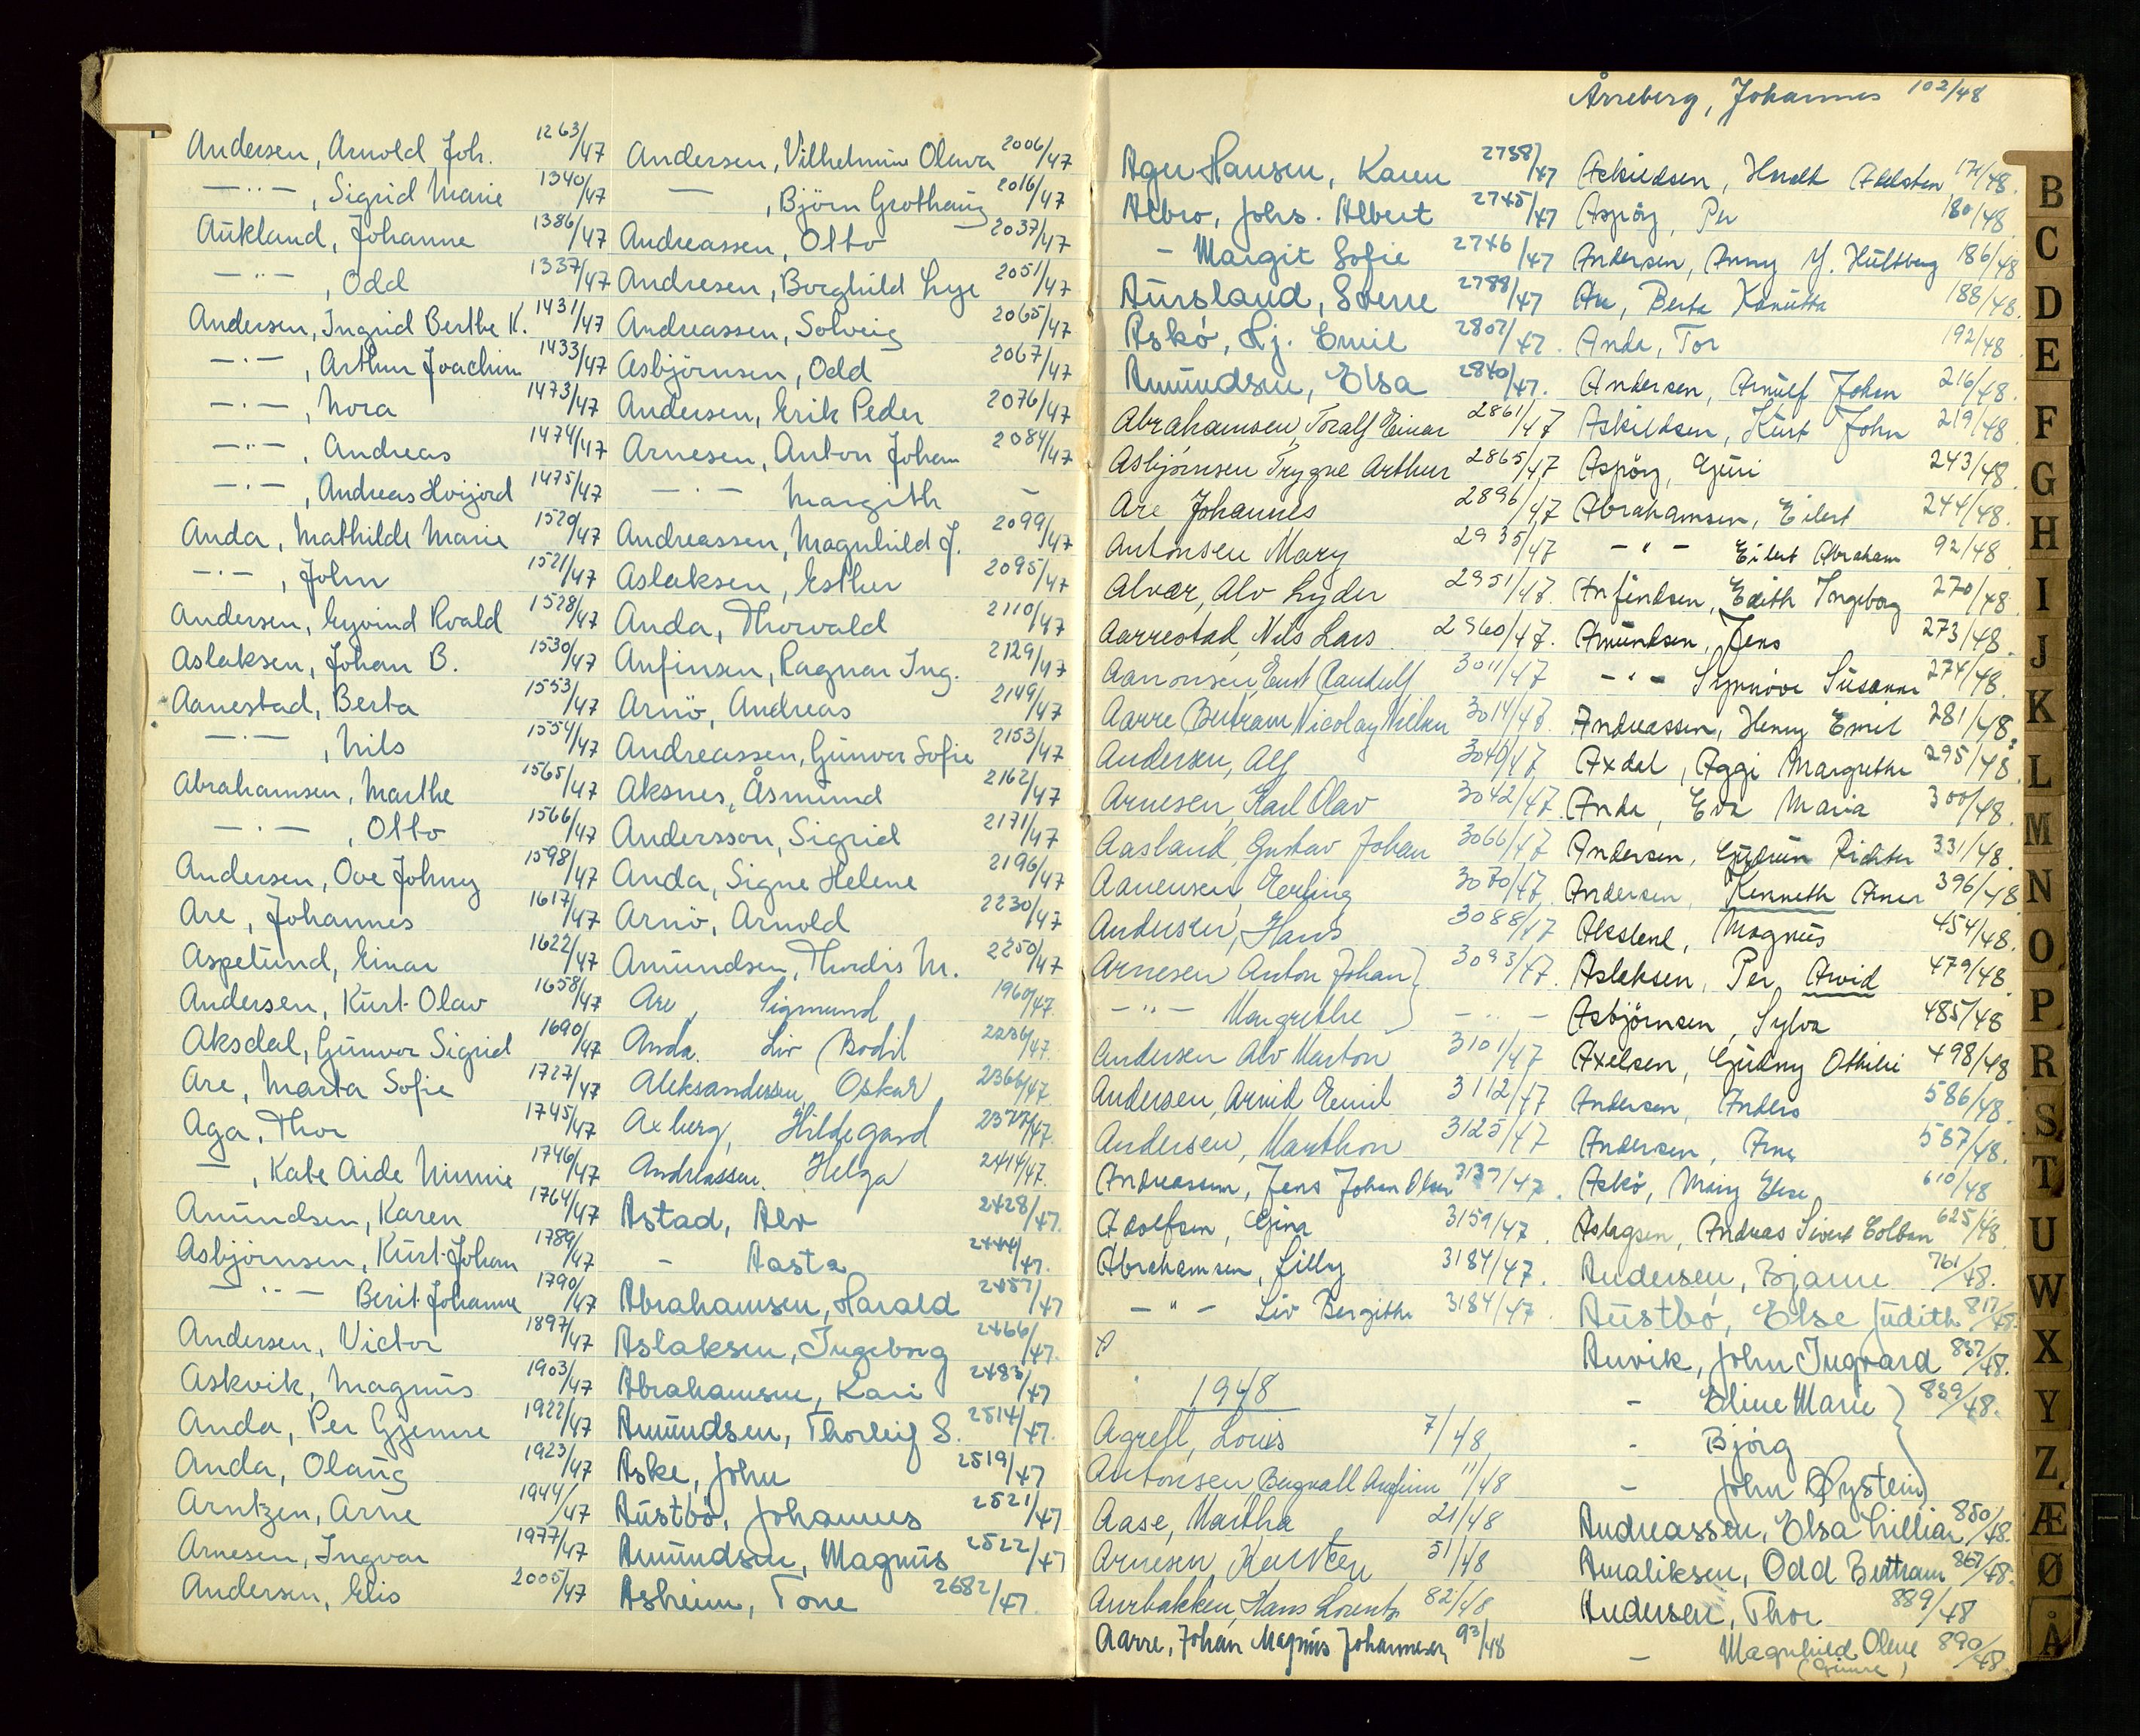 Andersen, Arnold Joh. 1263/47
—"— , Sigrid Marie 1340/47
Aukland, Johanne 1386/47
—"— , Odd 1337/47
Andersen, Ingrid Berthe K. 1431/47
—"— , Arthur Joachim 1433/47
—"— , Nora 1473/47
—"— , Andreas 1474/47
—"— , Andreas Hvijord 1475/47
Anda, Mathilde Marie 1520/47
—"— , John 1521/47
Andersen, Eyvind Roald 1528/47
Aslaksen, Johan B. 1530/47
Aanestad, Berta 1553/47
—"— , Nils 1554/47
Abrahamsen, Marthe 1565/47
—"— , Otto 1566/47
Andersen, Ove Johny 1598/47
Are, Johannes 1617/47
Aspelund, Einar 1622/47
Andersen, Kurt Olav 1658/47
Aksdal, Gunvor Sigrid 1690/47
Are, Marta Sofie 1727/47
Aga, Thor 1745/47
— , Kate Aide Minnie 1746/47
Amundsen, Karen 1764/47
Asbjörnsen, Kurt Johan 1789/47
—"— Berit Johanne 1790/47
Andersen, Victor 1897/47
Askvik, Magnus 1903/47
Anda, Per Gjemre 1922/47
Anda, Olaug 1923/47
Arntzen, Arne 1944/47
Arnesen, Ingvar 1977/47
Andersen, Elis 2005/47
Andersen, Vilhelmine Olava 2006/47
— , Björn Grothaug 2016/47
Andreassen, Otto 2037/47
Andresen, Borghild Lye 2051/47
Andreassen, Solveig 2065/47
Asbjörnsen, Odd 2067/47
Andersen, Erik Peder 2076/47
Arnesen, Anton Johan 2084/47
—"— Margith —
Andreassen, Magnhild J. 2099/47
Aslaksen, Esther 2095/47
Anda, Thorvald 2110/47
Anfinsen, Ragnar Ing. 2129/47
Arnö, Andreas 2149/47
Andreassen, Gunvor Sofie 2153/47
Aksnes, Åsmund 2162/47
Andersson, Sigrid 2171/47
Anda, Signe Helene 2196/47
Arnö, Arnold 2230/47
Amundsen, Thordis M. 2250/47
Are, Sigmund 1960/47
Anda, Liv Bodil 2236/47
Aleksandersen, Oskar 2366/47
Axberg, Hildegard
Andreassen, Helga 2414/47
Astad, Alv 2428/47
— Aasta 2444/47
Abrahamsen, Harald 2457/47
Aslaksen, Ingeborg 2466/47
Abrahamsen, Kari 2483/47
Amundsen, Thorleif S. 2514/47
Aske, John 2519/47
Austbö, Johannes 2521/47
Amundsen, Magnus 2522/47
Asheim, Tone 2682/47
Ager Hansen, Karen 2738/47
Albro, Johs. Albert 2745/47
— Margit Sofie 2746/47
Aursland, Sverre 2788/47
Askö, Hj. Emil 2807/47
Amundsen, Elsa 2840/47
Abrahamsen, Toralf Einar 2861/47
Asbjörnsen Trygve Arthur 2865/47
Are Johannes 2896/47
Antonsen Mary 2935/47
Alvær, Alv Lyder 2951/47
Aarrestad, Nils Lars 2960/47
Aanonsen, Randulf 3011/47
Aarre Bertram Nicolay Nielsen 3014/47
Andersen, Alf 3040/47
Arnesen, Karl Olav 3042/47
Aasland, Gustav Johan 3066/47
Aanensen, Erling 3070/47
Andersen, Hans 3088/47
Arnesen Anton Johan 3093/47
—"— Margrethe — " —
Andersen Alv Marton 3101/47
Andersen, Arvid Emil 3112/47
Andersen, Marthon 3125/47
Andreassen, Jens Johan Olsen 3137/47
Adolfsen, Gina 3159/47
Abrahamsen, Lilly 3184/47
—"— Liv Bergithe 3184/47
A
1948
Agrell, Louis 7/48
Antonsen, Bergvall Anfinn 11/48
Aase, Martha 21/48
Arnesen Karsten 51/48
Aurbakken, Hans Lorentz 82/48
Aarre, Johan Magnus Johannesen 93/48
Årreberg, Johannes 102/48
Askildsen, Adelsten 171/48
Aspöy, Per 180/48
Andersen, Anny Y. Hultberg 186/48
Berta Kanutta 188/48
Anda, Tor 192/48
Andersen, Arnulf Johan 216/48
Askildsen, Kurt John 219/48
Aspöy, Guri 243/48
Abrahamsen, Eilert 244/48
—"— Eilert Abraham 92/48
Anfindsen, Edith Ingeborg 270/48
Amundsen, Jens 273/48
—"— Synnöve Susanne 274/48
Andreassen, Henny Emil 281/48
Axdal, Aggi Margrethe 295/48
Anda, Eva Maria 300/48
Andersen, Gudrun Richter 331/48
Andersen, Kenneth Arner 396/48
Magnus 454/48
Aslaksen, Per Arvid 479/48
Asbjörnsen, Sylva 485/48
Axelsen, Gudny Othilie 498/48
Andersen, Anders 586/48
Andersen, Arne 587/48
Askö, Mary Else 610/48
Aslagsen, Andreas Sivert Kolban 625/48
Andersen, Bjarne 761/48
Austbö, Else Judith 817/48
Anvik, John Ingvard 837/48
— Eline Marie 839/48
— Bjørg
— John Øystein
Andreassen, Elsa Lillian 850/48
Amaliksen, Odd Bertram 867/48
Andersen, Thor 889/48
— Magnhild Olene 890/48
B
C
D
E
F
G
H
I
J
K
L
M
N
O
P
R
S
T
U
W
X
Y
Z
Æ
Ø
Å